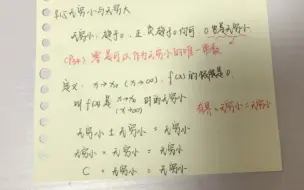 §1.5 无穷小与无穷大
无穷小: 趋于0, 正负趋于0均可 0也是无穷小
零是可以作为无穷小的唯一常数
定义: x→x₀ (x→∞), f(x)的极限是0
叫f(x)是 x→x₀ (x→∞) 时的无穷小
无穷小 ± 无穷小 = 无穷小
有界 × 无穷小 = 无穷小
无穷小 × 无穷小 = 无穷小
C × 无穷小 = 无穷小